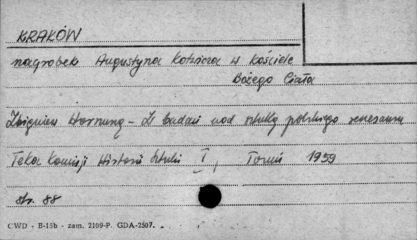 KRAKÓW
nagrobek Augustyna Kotwicza w kościele
Bożego Ciała
Zbigniew Hornung - Z badań nad sztuką polskiego renesansu
Teka Komisji Historii Sztuki I, Toruń 1959
str. 88
CWD - B-15b - zam. 2109-P. GDA-2507.